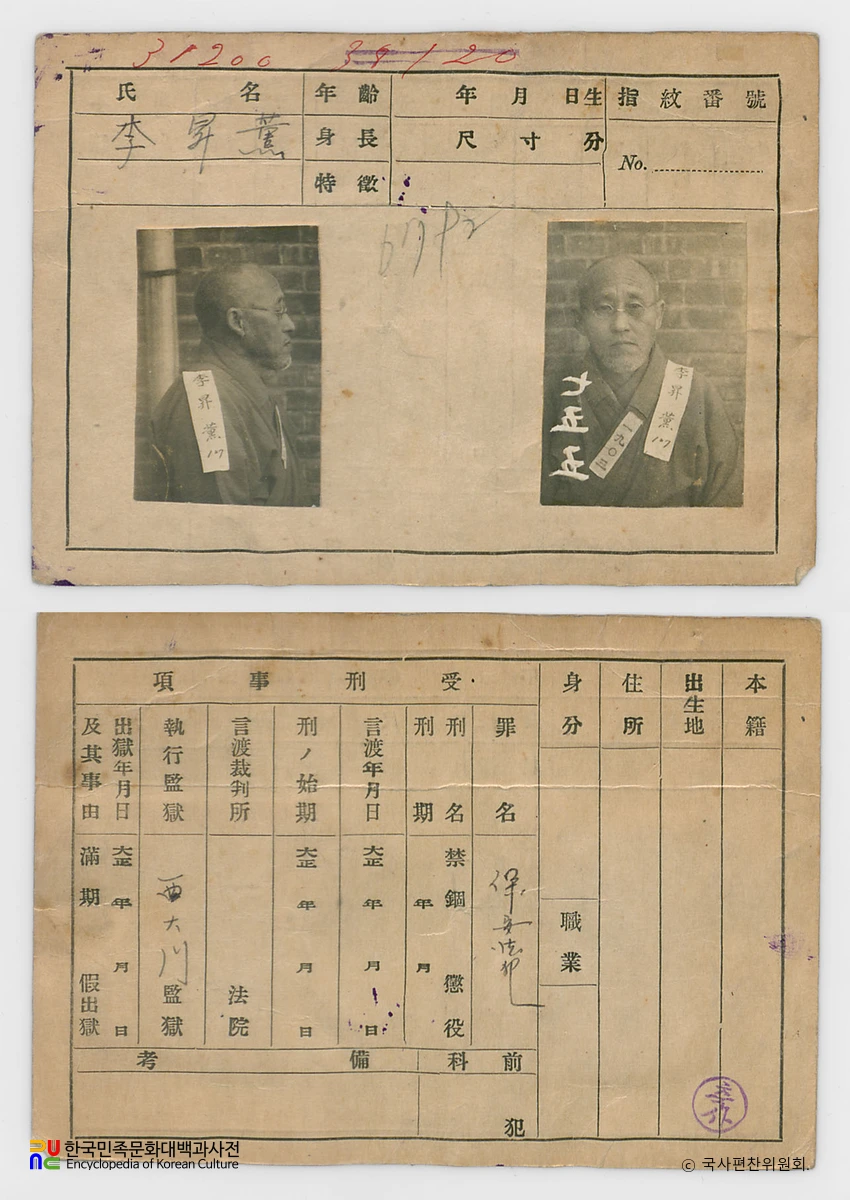 31200 39120
氏名
李昇薰
年齡
年 月 日生
指紋番號
身長
尺 寸 分
No.
特徵
李昇薰
七五五
一九〇三
李昇薰
本籍
出生地
住所
身分
職業
受刑事項
罪名
保安法犯
刑名
禁錮 懲役
刑期
年 月
言渡年月日
大正 年 月 日
刑ノ始期
大正 年 月 日
言渡裁判所
法院
執行監獄
西大門監獄
出獄年月日
大正 年 月 日
及其事由
滿期 假出獄
前科
犯
備考
한국민족문화대백과사전
Encyclopedia of Korean Culture
© 국사편찬위원회.